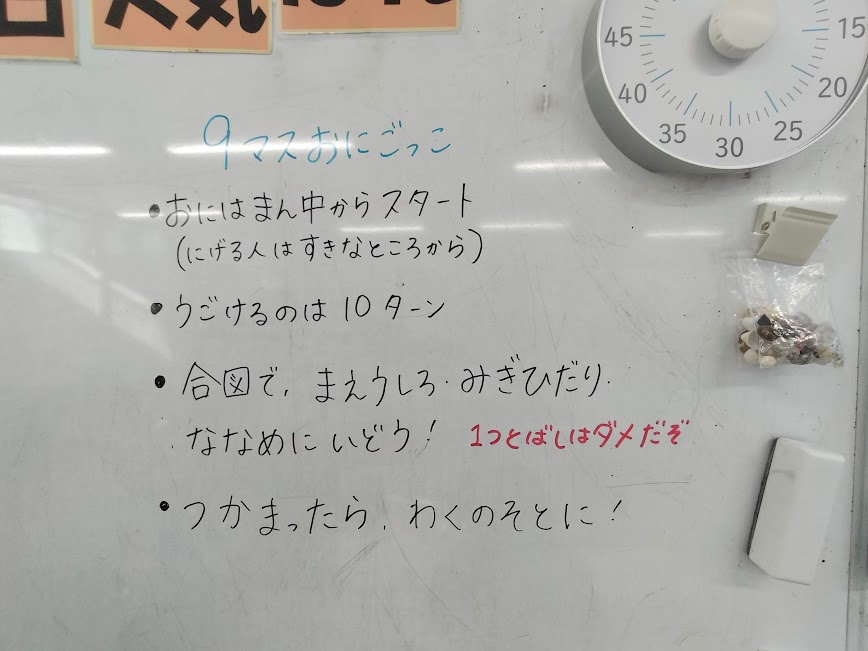 9マスおにごっこ
・おにはまん中からスタート
(にげる人はすきなところから)
・うごけるのは10ターン
・合図で、まえうしろ・みぎひだり・
ななめにいどう! 1つとばしはダメだぞ
・つかまったら、わくのそとに!
45
40
35
30
25
20
15